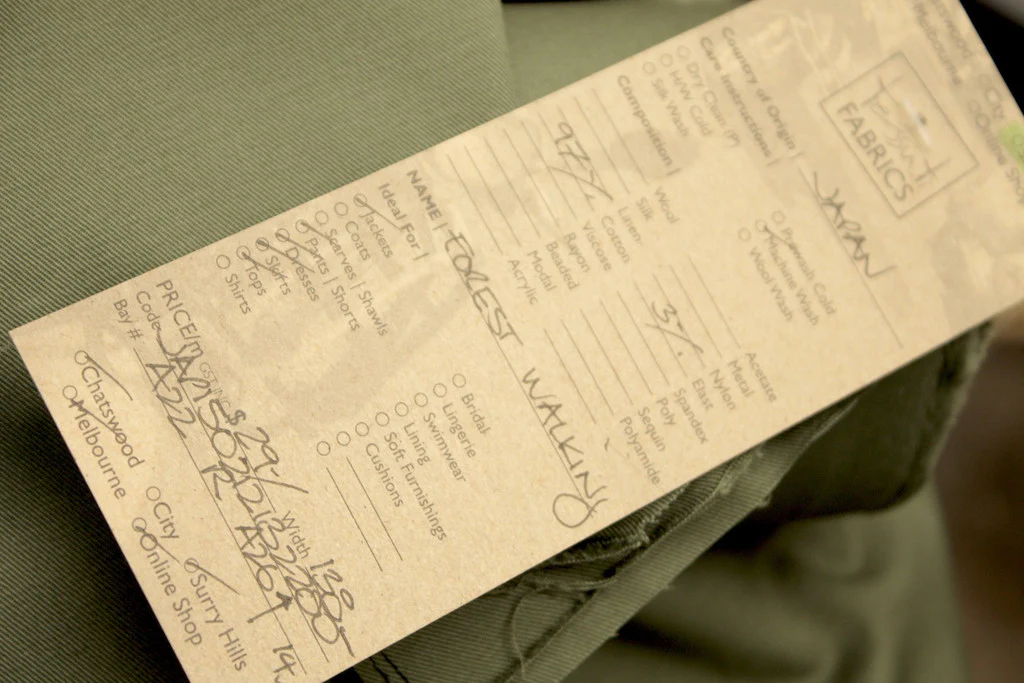 FABRICS
Country of Origin | JAPAN
Care Instructions |
Dry Clean (P)
H/W Cold
Silk Wash
Machine Wash
Wool Wash
Composition |
Wool
Silk
Linen
97% Cotton
Viscose
Rayon
Beaded
Modal
Acrylic
Acetate
Metal
Nylon
3% Elast
Spandex
Poly
Sequin
Polyamide
NAME | FOREST WALKING
Ideal For |
Jackets
Coats
Scarves | Shawls
Pants | Shorts
Dresses
Skirts
Tops
Shirts
Bridal
Lingerie
Swimwear
Lining
Soft Furnishings
Cushions
PRICE/m $ 29/ Width 130
Code
Bay # A222
Chatswood
City
Surry Hills
Melbourne
Online Shop